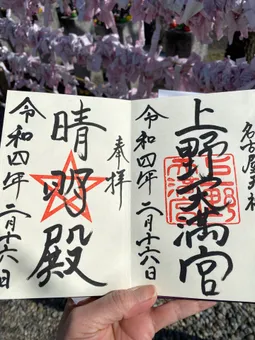 名古屋天神
上野天満宮
令和四年二月十六日
奉拝
晴明殿
令和四年二月十六日